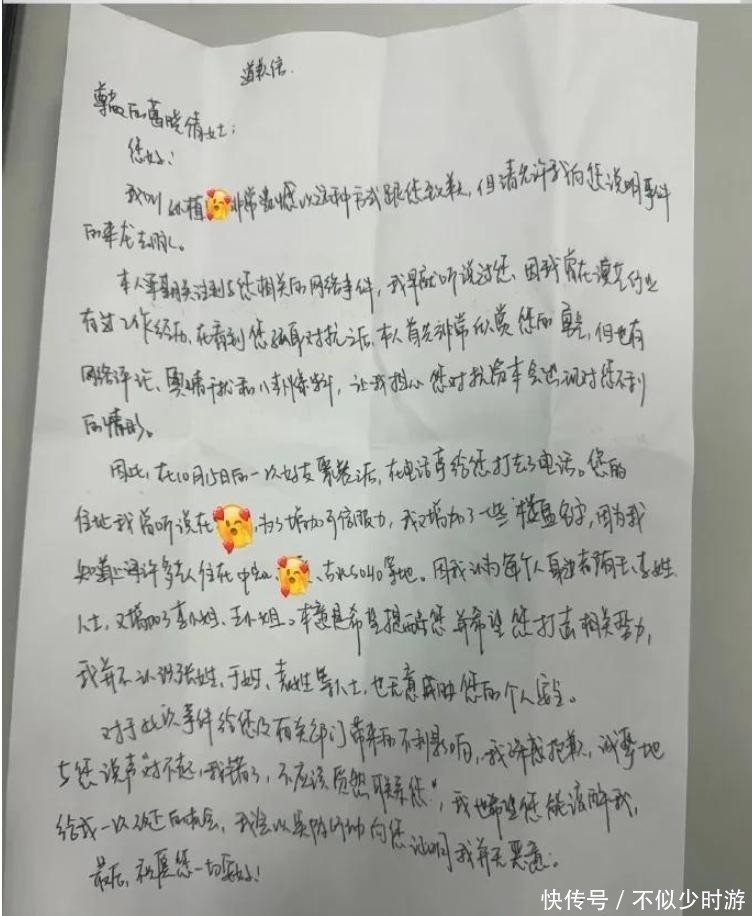 道歉信.
尊敬的葛晓倩女士:
您好!
我叫 植 非常 以这种方式跟您致歉,但请允许我向您说明事件
的来龙去脉。
本人早期关注到与您相关的网络事件,我早就听说过您、因我曾在 行业
有过工作经历,在看到您 对抗之后,本人首先非常欣赏您的 ,但也有
网络评论、舆情干扰和八卦爆料,让我担心您对抗 会出现对您不利
的情形。
因此,在10月15日的一次好友聚餐之后,在电话亭给您打去了电话。您的
住址我曾听说在 ,为了增加可信服力,我又增加了一些楼盘名字,因为我
知道上海许多名人住在中 、 、 5040等地。因我认为每个人身边都有王、李姓
人士,又增加了李小姐、王小姐。本意是希望提醒您并希望您打击相关势力,
我并不认识张姓、于姓、 姓等人士,也无意威胁您的个人安全。
对于此次事件给您及有关部门带来的不利影响,我深感抱歉,诚挚地
与您说声“对不起,我错了,不应该贸然联系您”,我也希望您能谅解我,
给我一次改正的机会,我会以实际行动向您证明我并无恶意。
最后,祝愿您一切安好!
快传号 / 不似少时游